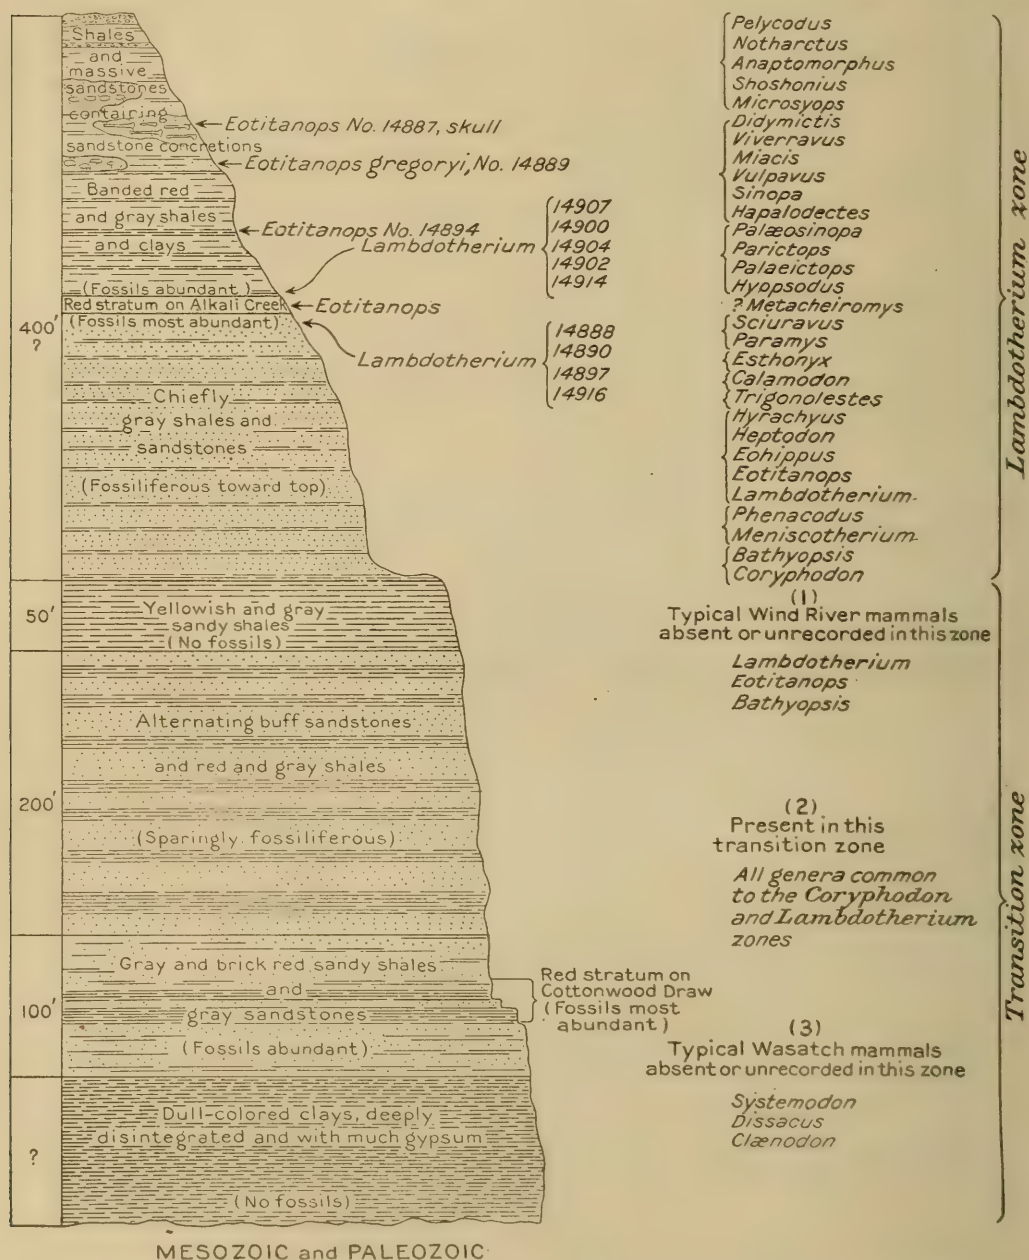 Shales
and
massive
sandstones
containing
sandstone concretions
Banded red
and gray shales
and clays
(Fossils abundant)
Red stratum on Alkali Creek
(Fossils most abundant)
Chiefly
gray shales and
sandstones
(Fossiliferous toward top)
Yellowish and gray
sandy shales
(No fossils)
Alternating buff sandstones
and red and gray shales
(Sparingly fossiliferous)
Gray and brick red sandy shales
and
gray sandstones
(Fossils abundant)
Dull-colored clays, deeply
disintegrated and with much gypsum
(No fossils)
MESOZOIC and PALEOZOIC
400'
?
50'
200'
100'
?
Eotitanops No. 14887, skull
Eotitanops gregoryi, No. 14889
Eotitanops No. 14894
Lambdotherium
14907
14900
14904
14902
14914
Eotitanops
Lambdotherium
14888
14890
14897
14916
Red stratum on
Cottonwood Draw
(Fossils most
abundant)
Pelycodus
Notharctus
Anaptomorphus
Shoshonius
Microsyops
Didymictis
Viverravus
Miacis
Vulpavus
Sinopa
Hapalodectes
Palæosinopa
Parictops
Palaeictops
Hyopsodus
? Metacheiromys
Sciuravus
Paramys
Esthonyx
Calamodon
Trigonolestes
Hyrachyus
Heptodon
Eohippus
Eotitanops
Lambdotherium
Phenacodus
Meniscotherium
Bathyopsis
Coryphodon
(1)
Typical Wind River mammals
absent or unrecorded in this zone
Lambdotherium
Eotitanops
Bathyopsis
(2)
Present in this
transition zone
All genera common
to the Coryphodon
and Lambdotherium
zones
(3)
Typical Wasatch mammals
absent or unrecorded in this zone
Systemodon
Dissacus
Clænodon
Lambdotherium zone
Transition zone